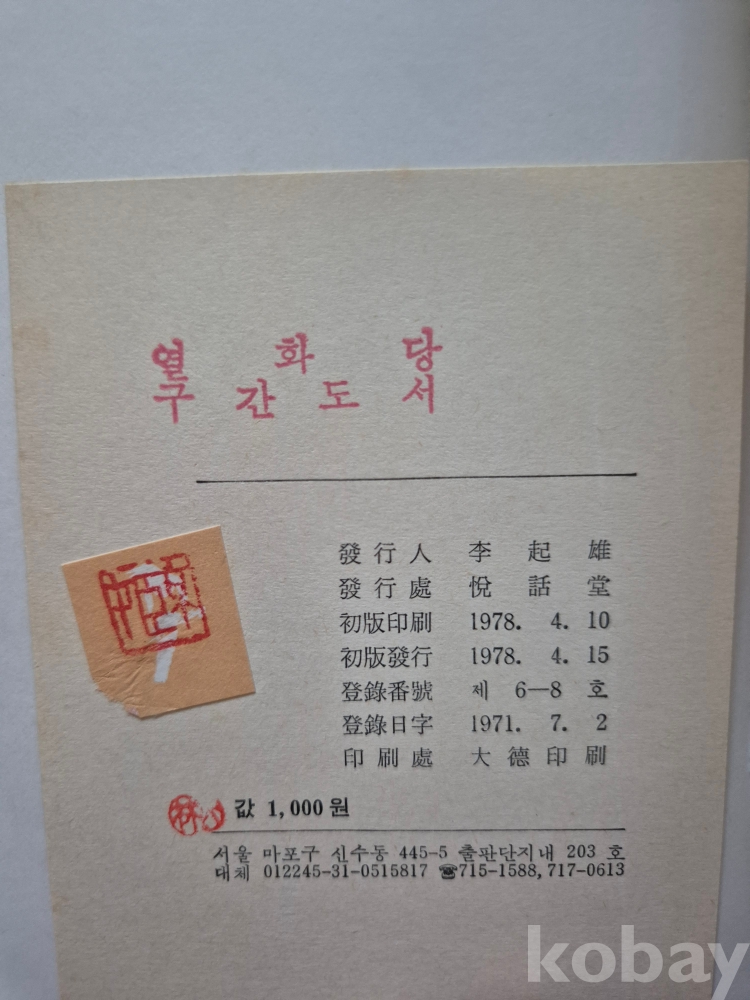 열 화 당
구 간 도 서
發行人 李起雄
發行處 悅話堂
初版印刷 1978. 4. 10
初版發行 1978. 4. 15
登錄番號 제 6—8 호
登錄日字 1971. 7. 2
印刷處 大德印刷
값 1,000원
서울 마포구 신수동 445-5 출판단지내 203 호
대체 012245-31-0515817 ☎715-1588, 717-0613
kobay